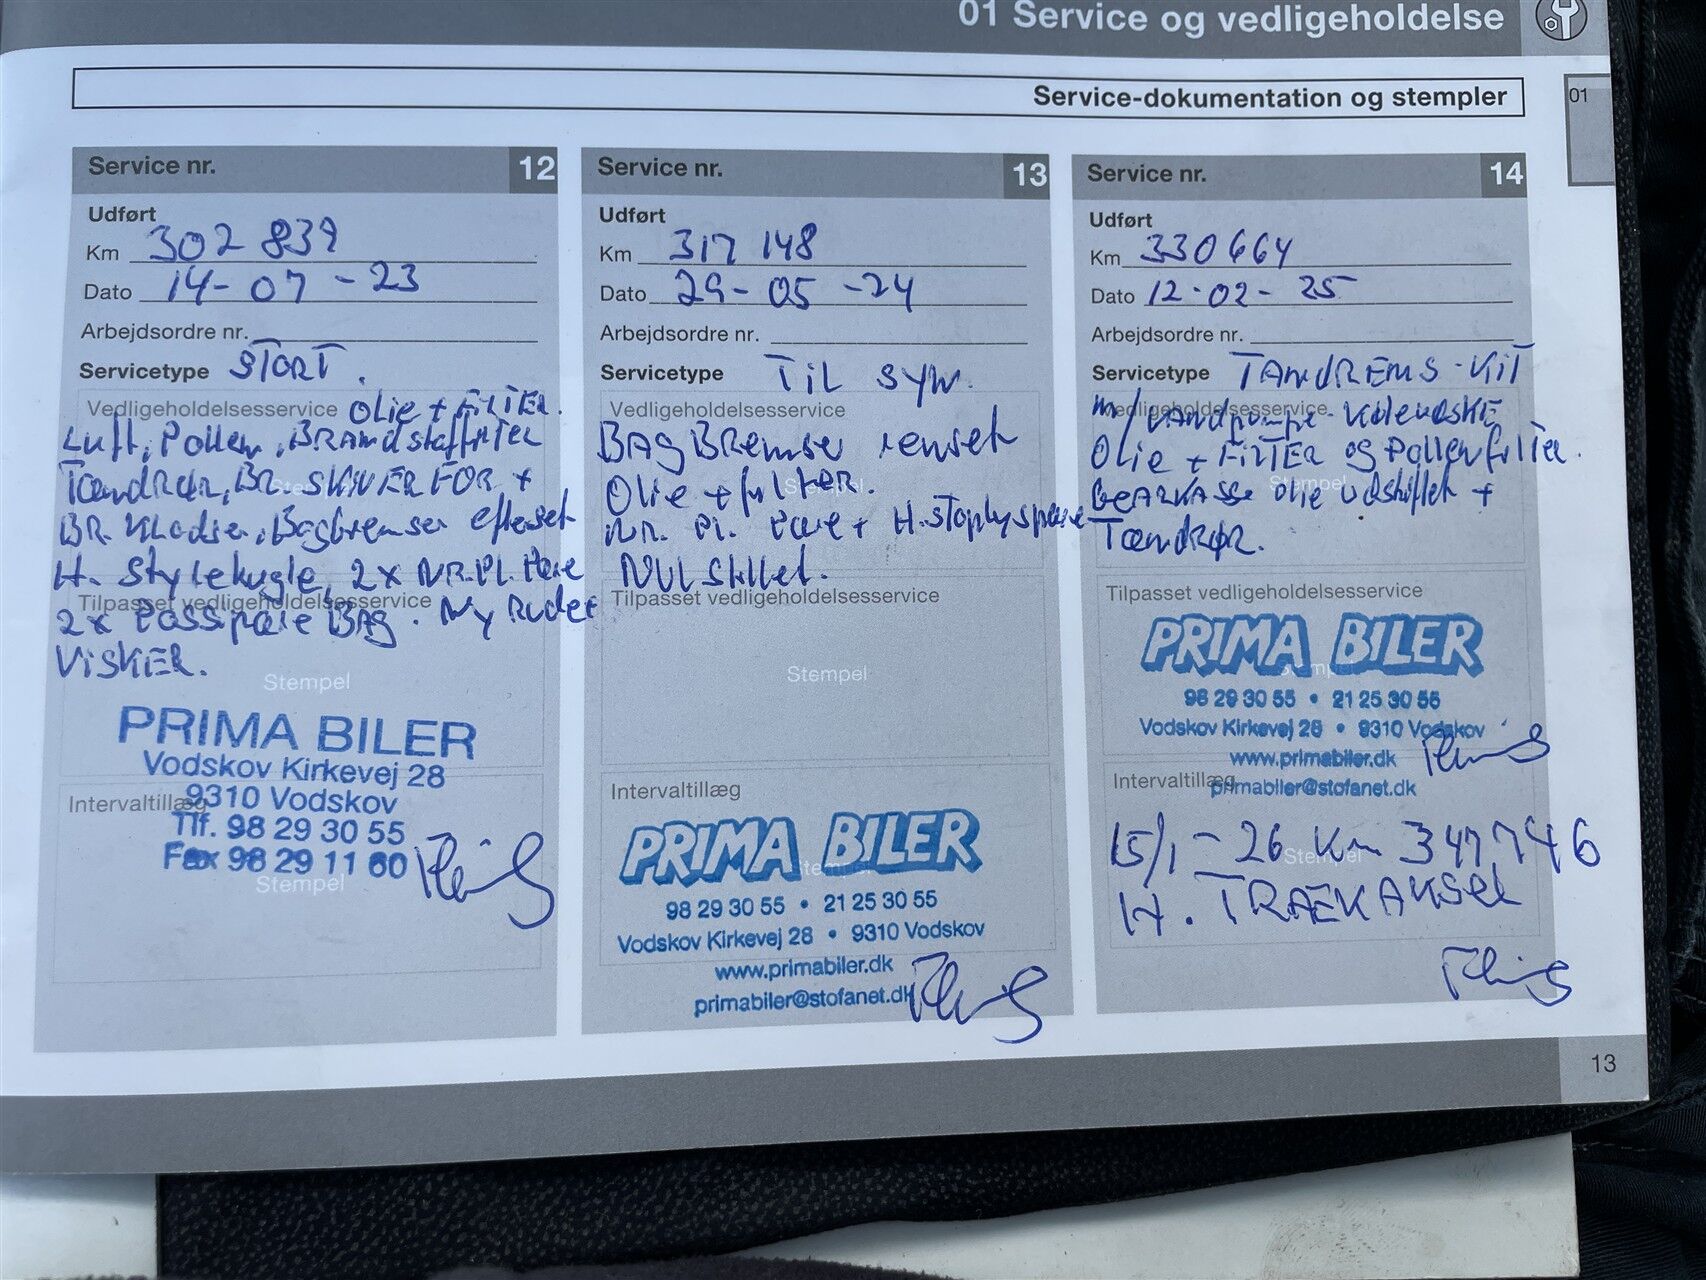 01 Service og vedligeholdelse
Service-dokumentation og stempler
01
Service nr. 12
Udført
Km 302 839
Dato 14-07-23
Arbejdsordre nr.
Servicetype STORT.
Vedligeholdelsesservice OliE + FilTER.
Luft, Pollen, BRAndstoffilter
TændRør, BR. SKIVER FOR +
BR. Klodser, Bagbremser efterset
H. Stylekugle, 2x NR.Pl. Pære
Tilpasset vedligeholdelsesservice
2x Possipære BAG. Ny Rudet
VISKER.
Stempel
PRIMA BILER
Vodskov Kirkevej 28
9310 Vodskov
Intervaltillæg
Tlf. 98 29 30 55
Fax 98 29 11 60
Stempel
Service nr. 13
Udført
Km 317 148
Dato 29-05-24
Arbejdsordre nr.
Servicetype TiL SYN.
Vedligeholdelsesservice
BAgBremser renset
Olie + filter.
Stempel
NR. Pl. Pære + H. Stoplyspære
NUL stillet.
Tilpasset vedligeholdelsesservice
Stempel
Intervaltillæg
PRIMA BILER
98 29 30 55 • 21 25 30 55
Vodskov Kirkevej 28 • 9310 Vodskov
www.primabiler.dk
primabiler@stofanet.dk
Service nr. 14
Udført
Km 330664
Dato 12-02-25
Arbejdsordre nr.
Servicetype TANDREMS-KiT
Vedligeholdelsesservice
m/VANdpumpe-KølevæskE
Olie + FilTER og Pollenfilter.
Stempel
GEARKASSE olie udskiftet +
Tændrør.
Tilpasset vedligeholdelsesservice
PRIMA BILER
Stempel
98 29 30 55 • 21 25 30 55
Vodskov Kirkevej 28 • 9310 Vodskov
www.primabiler.dk
Intervaltillæg
primabiler@stofanet.dk
15/1-26 Km 347,746
Stempel
H. TRÆKAKSEL
13